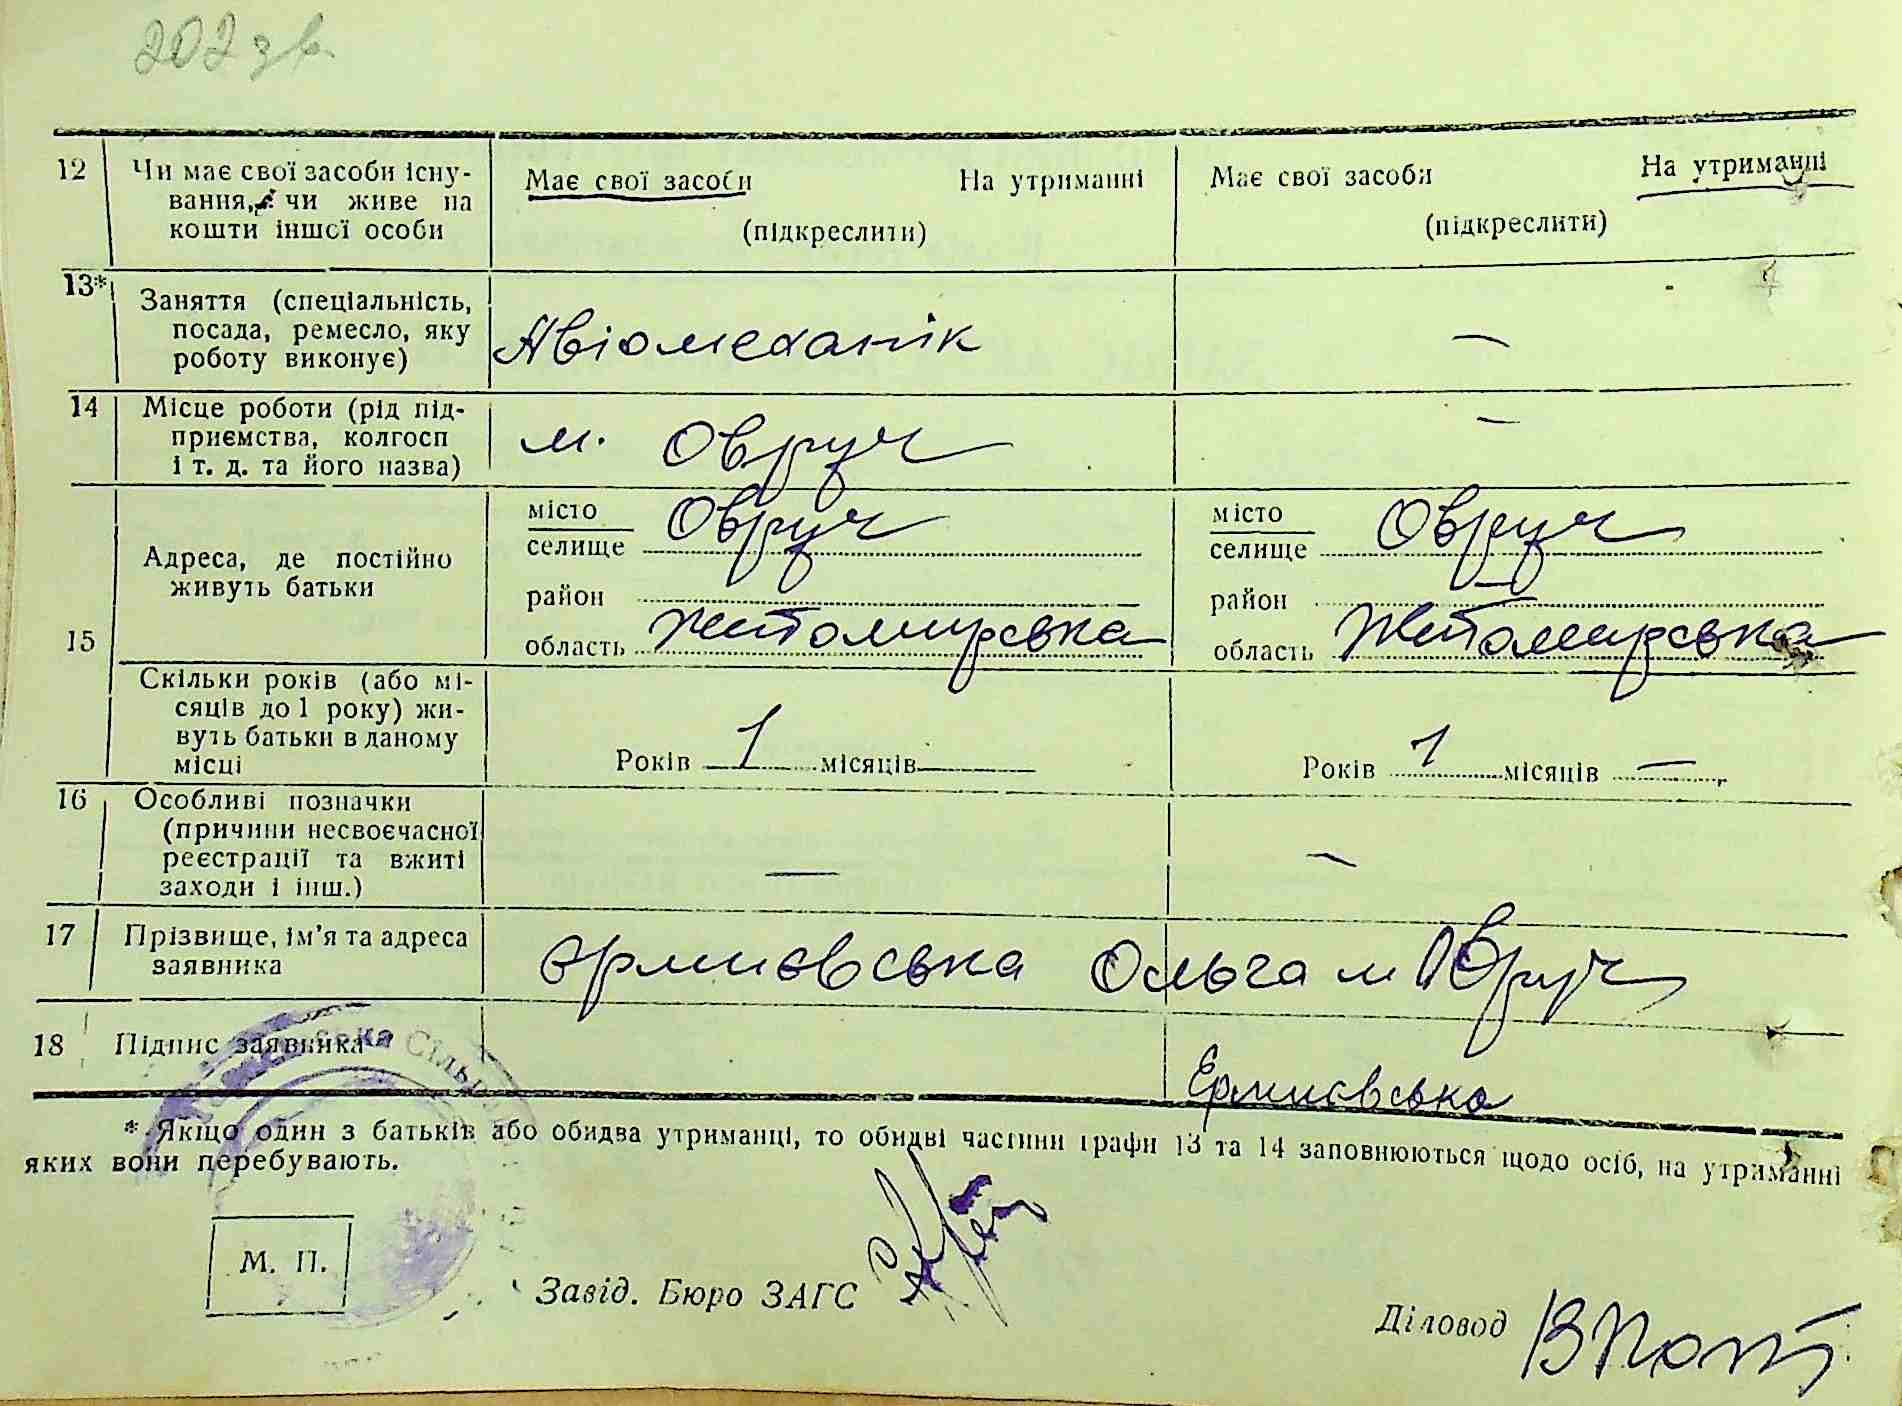 202 зв
12 Чи має свої засоби існу-
вання, чи живе на
кошти іншої особи
Має свої засоби На утриманні
(підкреслити)
Має свої засоби На утриманні
(підкреслити)
13* Заняття (спеціальність,
посада, ремесло, яку
роботу виконує)
Авіомеханік
—
14 Місце роботи (рід під-
приємства, колгосп
і т. д. та його назва)
м. Овруч
—
15
Адреса, де постійно
живуть батьки
місто
селище Овруч
район
область Житомирська
місто
селище Овруч
район —
область Житомирська
Скільки років (або мі-
сяців до 1 року) жи-
вуть батьки в даному
місці
Років 1 місяців
Років 1 місяців —
16 Особливі позначки
(причини несвоєчасної
реєстрації та вжиті
заходи і інш.)
—
—
17 Прізвище, ім'я та адреса
заявника
Єрмиєвська Ольга м Овруч
18 Підпис заявника
Ермиєвська
* Якщо один з батьків або обидва утриманці, то обидві частини графи 13 та 14 заповнюються щодо осіб, на утриманні
яких вони перебувають.
М. П.
Завід. Бюро ЗАГС
Діловод